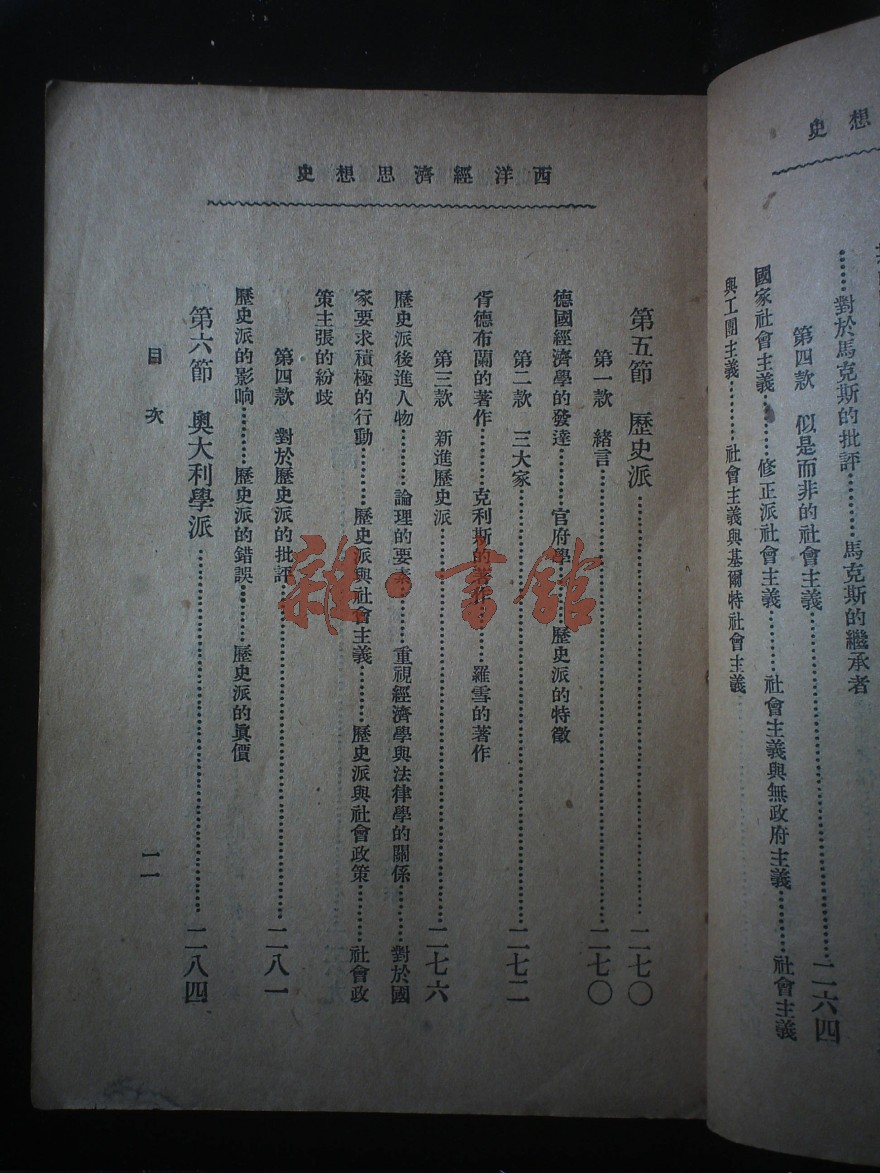 想史
……對於馬克斯的批評………馬克斯的繼承者
第四款　似是而非的社會主義…………二六四
國家社會主義………修正派社會主義………社會主義與無政府主義………社會主義
與工團主義………社會主義與基爾特社會主義
西洋經濟思想史
第五節　歷史派…………二七〇
第一款　緒言…………二七〇
德國經濟學的發達………官府學………歷史派的特徵
第二款　三大家…………二七二
肯德布蘭的著作………克利斯的著作………羅雪的著作
第三款　新進歷史派…………二七六
歷史派後進人物………論理的要素………重視經濟學與法律學的關係………對於國
家要求積極的行動………歷史派與社會主義………歷史派與社會政策………社會政
策主張的紛歧
第四款　對於歷史派的批評…………二八一
歷史派的影响………歷史派的錯誤………歷史派的眞價
第六節　奧大利學派…………二八四
目次
一一
雜·書館